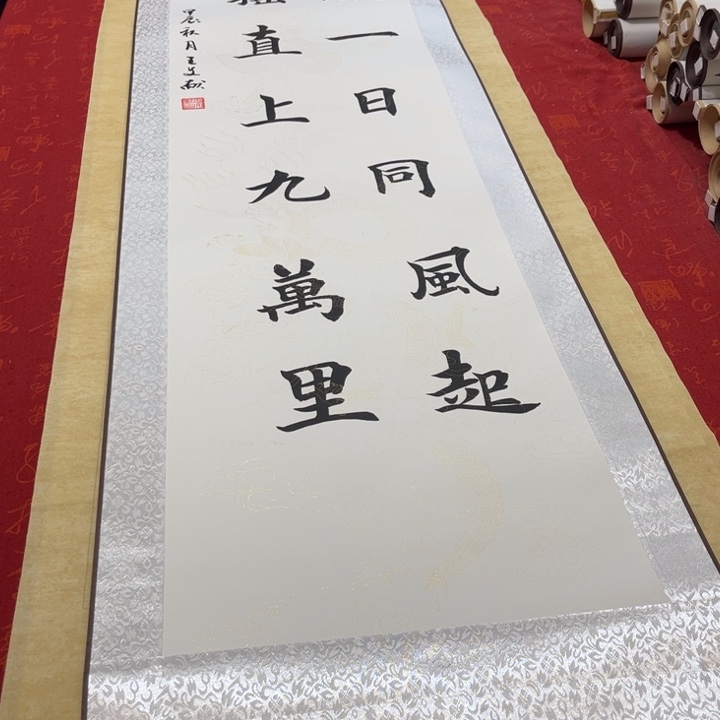 一日同風起
直上九萬里
甲辰秋月王